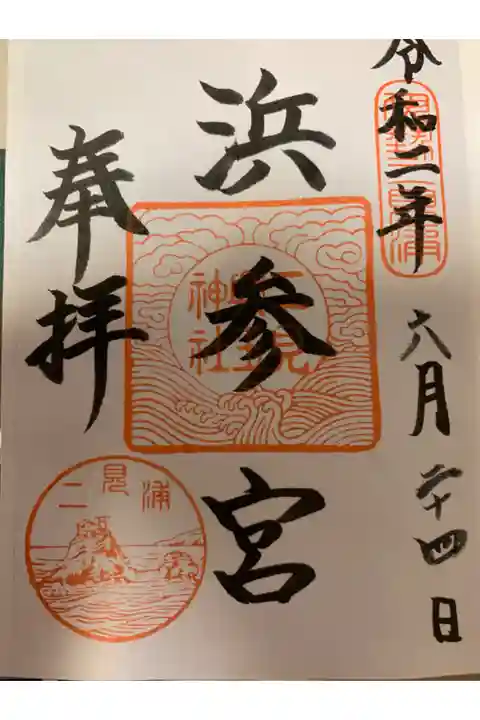 令和二年
六月二十四日
浜参宮
二見興玉神社
奉拝
二見浦